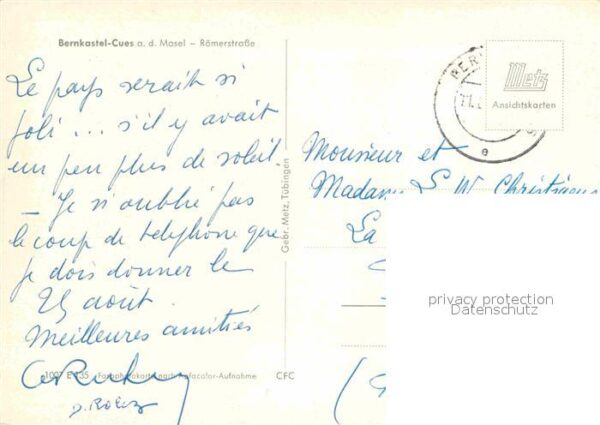 Bernkastel-Cues a. d. Mosel – Römerstraße
Le pays serait si
joli ... s'il y avait
un peu plus de soleil
– Je n'oublie pas
le coup de telephone que
je dois donner le
25 août.
Meilleures amitiés
1007 E 135 Farbphotokarte nach Agfacolor-Aufnahme
CFC
Gebr. Metz, Tübingen
BER
Metz
Ansichtskarten
Monsieur et
Madame
La
privacy protection
Datenschutz